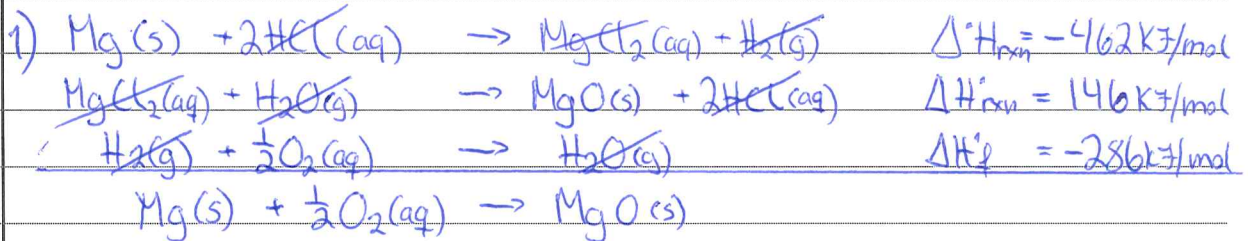 1) Mg(s) + 2HCl(aq) → MgCl₂(aq) + H₂(g) Δ°Hrxn = -462 kJ/mol
MgCl₂(aq) + H₂O(g) → MgO(s) + 2HCl(aq) ΔH°rxn = 146 kJ/mol
H₂(g) + ½O₂(aq) → H₂O(g) ΔH°f = -286 kJ/mol
Mg(s) + ½O₂(aq) → MgO(s)